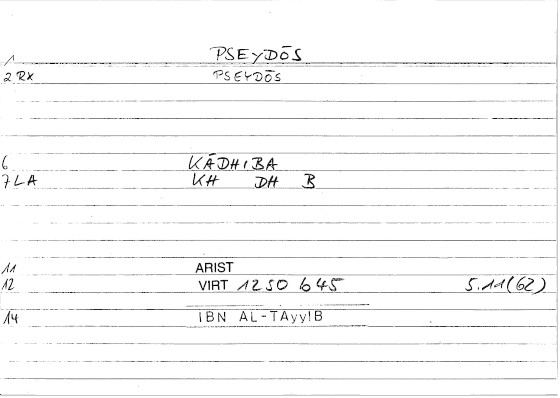 1 PSEYDŌS
2 RX PSEYDŌS
6 KĀDHIBA
7 LA KH DH B
11 ARIST
12 VIRT 1250 b45 5.11(62)
14 IBN AL-TAyyIB